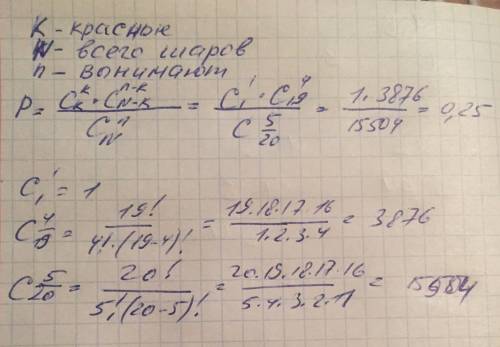 К - красные
N - всего шаров
n - вынимают
P = C_K^k · C_{N-K}^{n-k} / C_N^n = C_1^1 · C_19^4 / C_20^5 = 1·3876 / 15504 = 0,25
C_1^1 = 1
C_19^4 = 19! / 4!·(19-4)! = 19·18·17·16 / 1·2·3·4 = 3876
C_20^5 = 20! / 5!·(20-5)! = 20·19·18·17·16 / 5·4·3·2·1 = 15504